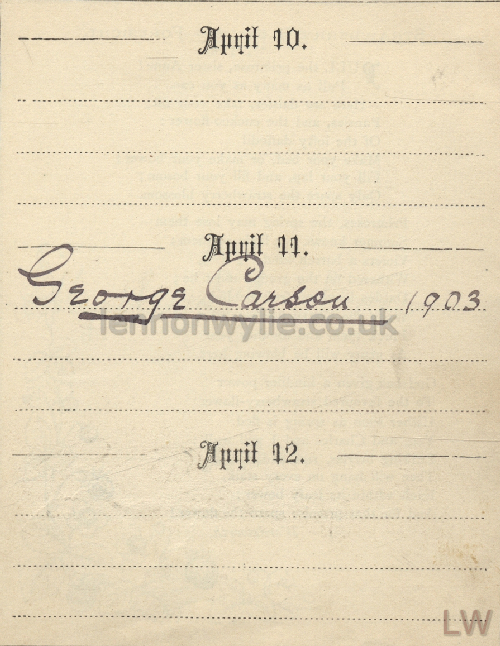 April 10.
April 11.
George Carson 1903
lennonwylie.co.uk
April 12.
LW